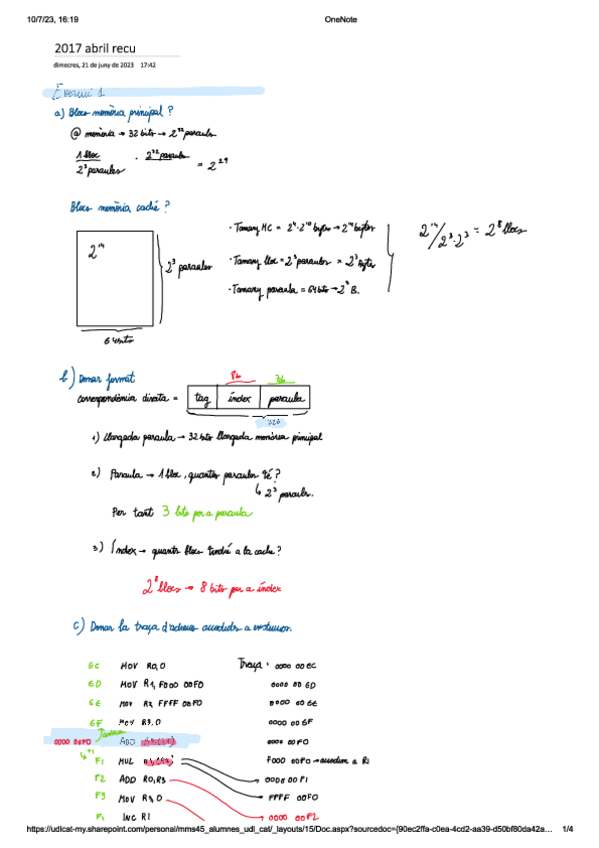 10/7/23, 16:19
OneNote
2017 abril recu
dimecres, 21 de juny de 2023 17:42
Exercici 1
a) Blocs memòria principal?
@ memòria → 32 bits → 2³² paraules.
1 bloc / 2³ paraules · 2³² paraules = 2²⁹
Blocs memòria caché?
2¹⁴
2³ paraules
64 bits
· Tamany MC = 2⁴·2¹⁰ bytes → 2¹⁴ bytes
· Tamany bloc = 2³ paraules = 2³ bytes
· Tamany paraula = 64 bits → 2³ B.
2¹⁴/2³·2³ = 2⁸ blocs
b) Donar format
8b 3b
correspondència directa = tag índex paraula
32b
1) Llargada paraula → 32 bits llargada memòria principal
2) Paraula → 1 bloc, quantes paraules té?
↳ 2³ paraules.
Per tant 3 bits per a paraula
3) Índex → quants blocs tindré a la cache?
2⁸ blocs → 8 bits per a índex
c) Donar la traça d'adreces accedides a
EC MOV R0, 0 Traça: 0000 00EC
ED MOV R1, F000 00F0 0000 00ED
EE MOV R2, FFFF 00F0 0000 00EE
EF MOV R3, 0 0000 00EF
0000 00F0 ADD 0000 00F0
↳+1 F1 MUL F000 00F0 → accedim a R1
F2 ADD R0, R3 0000 00F1
F3 MOV R3, 0 FFFF 00F0
INC R1 0000 00F2
https://udlcat-my.sharepoint.com/personal/mms45_alumnes_udl_cat/_layouts/15/Doc.aspx?sourcedoc={90ec2ffa-c0ea-4cd2-aa39-d50bf80da42a… 1/4